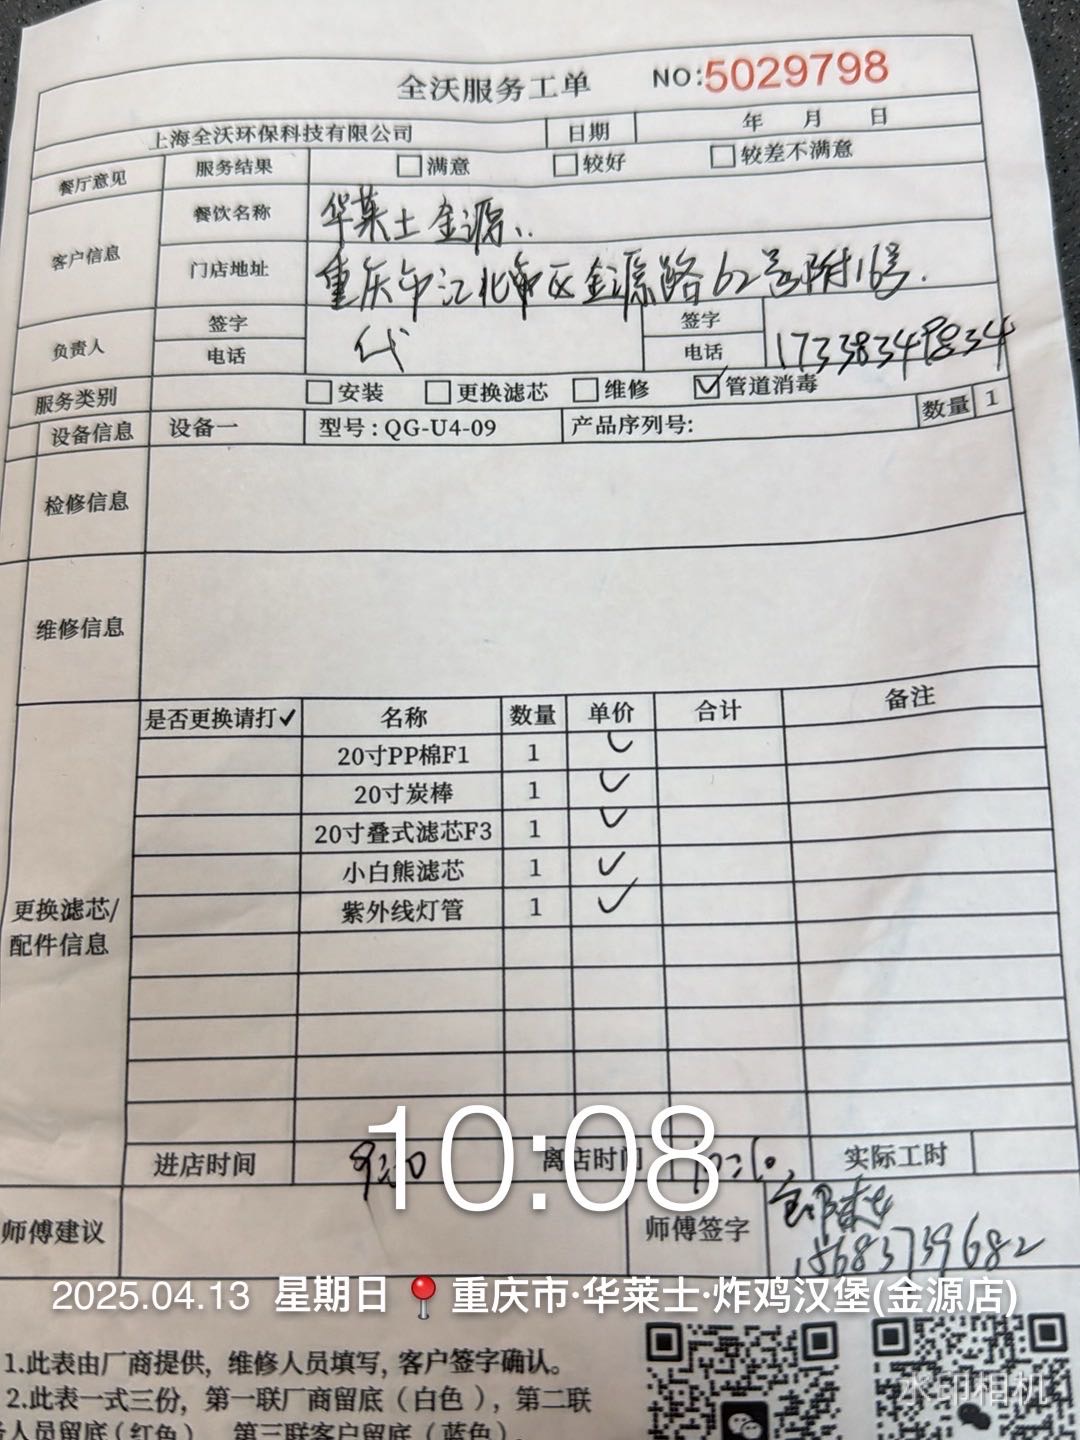 全沃服务工单 NO:5029798
上海全沃环保科技有限公司 日期 年 月 日
餐厅意见 服务结果 满意 较好 较差不满意
客户信息 餐饮名称 华莱士金源
门店地址 重庆市江北区金源路62号附16号.
负责人 签字 代 签字
电话 电话 17338349834
服务类别 安装 更换滤芯 维修 ☑管道消毒
设备信息 设备一 型号:QG-U4-09 产品序列号: 数量 1
检修信息
维修信息
更换滤芯/
配件信息
是否更换请打✓ 名称 数量 单价 合计 备注
20寸PP棉F1 1 ✓
20寸炭棒 1 ✓
20寸叠式滤芯F3 1 ✓
小白熊滤芯 1 ✓
紫外线灯管 1 ✓
进店时间 离店时间 实际工时
10:08
师傅建议 师傅签字
15683739682
2025.04.13 星期日 📍重庆市·华莱士·炸鸡汉堡(金源店)
1.此表由厂商提供, 维修人员填写, 客户签字确认。
2.此表一式三份, 第一联厂商留底(白色), 第二联
人员留底(红色), 第三联客户留底(蓝色)。
水印相机